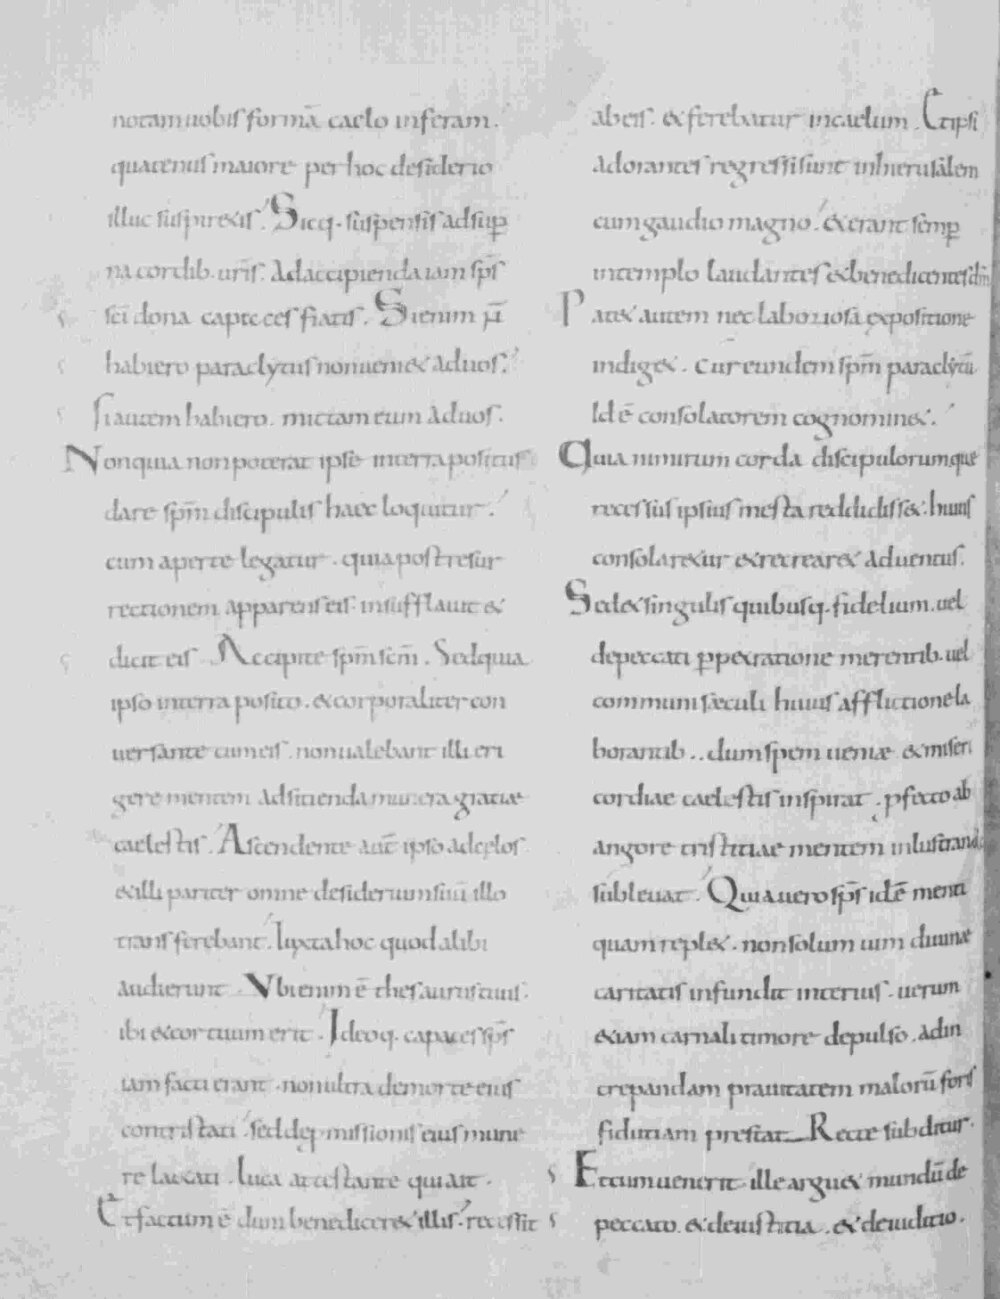 notam uobis formā caelo inferam.
quatenus maiore per hoc desiderio
illuc suspiretis. Sicq. suspensis ad sup
na cordib. urīs. Ad accipienda iam sp̄s
sc̄i dona capaces fiatis. Si enim n̄
habiero paraclytus non ueniet ad uos.
si autem habiero. mittam eum ad uos.
Non quia non poterat ipse in terra positus
dare sp̄m discipulis haec loquitur.
cum aperte legatur. quia post resur
rectionem apparens eis. insufflauit et
dicit eis. Accipite sp̄m sc̄m. Sed quia
ipso in terra posito. et corporaliter con
uersante cum eis. non ualebant illi eri
gere mentem ad sitienda munera gratiae
caelestis. Ascendente aut̄ ipso ad celos
et illi pariter omne desiderium suū illo
transferebant. Iuxta hoc quod alibi
audierunt. Vbi enim ē thesaurus tuus.
ibi et cor tuum erit. Ideoq. capaces sp̄s
iam facti erant. non ultra de morte eius
contristati. sed de p̱missionis eius mune
re laetati. Luca attestante qui ait.
Et factum ē dum benediceret illis. recessit
ab eis. et ferebatur in caelum. Et ipsi
adorantes regressi sunt in hierusalem
cum gaudio magno. et erant semp̱
in templo laudantes et benedicentes dm̄
Patet autem nec laboriosa expositione
indiget. cur eundem sp̄m paraclytū
Id ē consolatorem cognominet.
Quia nimirum corda discipulorum quae
recessus ipsius mesta reddidisset. huius
consolaretur et recrearet aduentus.
Sed et singulis quibusq. fidelium. uel
de peccati p̱petratione merentib. uel
communi saeculi huius afflictione la
borantib.. dum spem ueniae et miseri
cordiae caelestis inspirat. p̱fecto ab
angore tristitiae mentem inlustrando
subleuat. Quia uero sp̄s idē menti
quam replet. non solum uim diuinae
caritatis infundit interius. uerum
etiam carnali timore depulso. ad in
crepandam prauitatem malorū foris
fiduciam prestat. Recte subditur.
Et cum uenerit ille arguet mundū de
peccato. et de iustitia. et de iuditio.